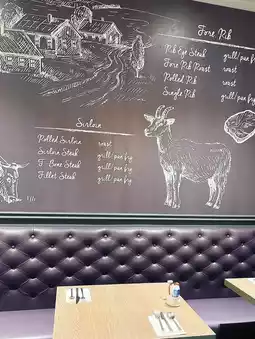 Fore Rib
Rib Eye Steak grill/pan fry
Fore Rib Roast roast
Rolled Rib roast
Single Rib grill/pan fry
Sirloin
Rolled Sirloin roast
Sirloin Steak grill/pan fry
T-Bone Steak grill/pan fry
Fillet Steak grill/pan fry